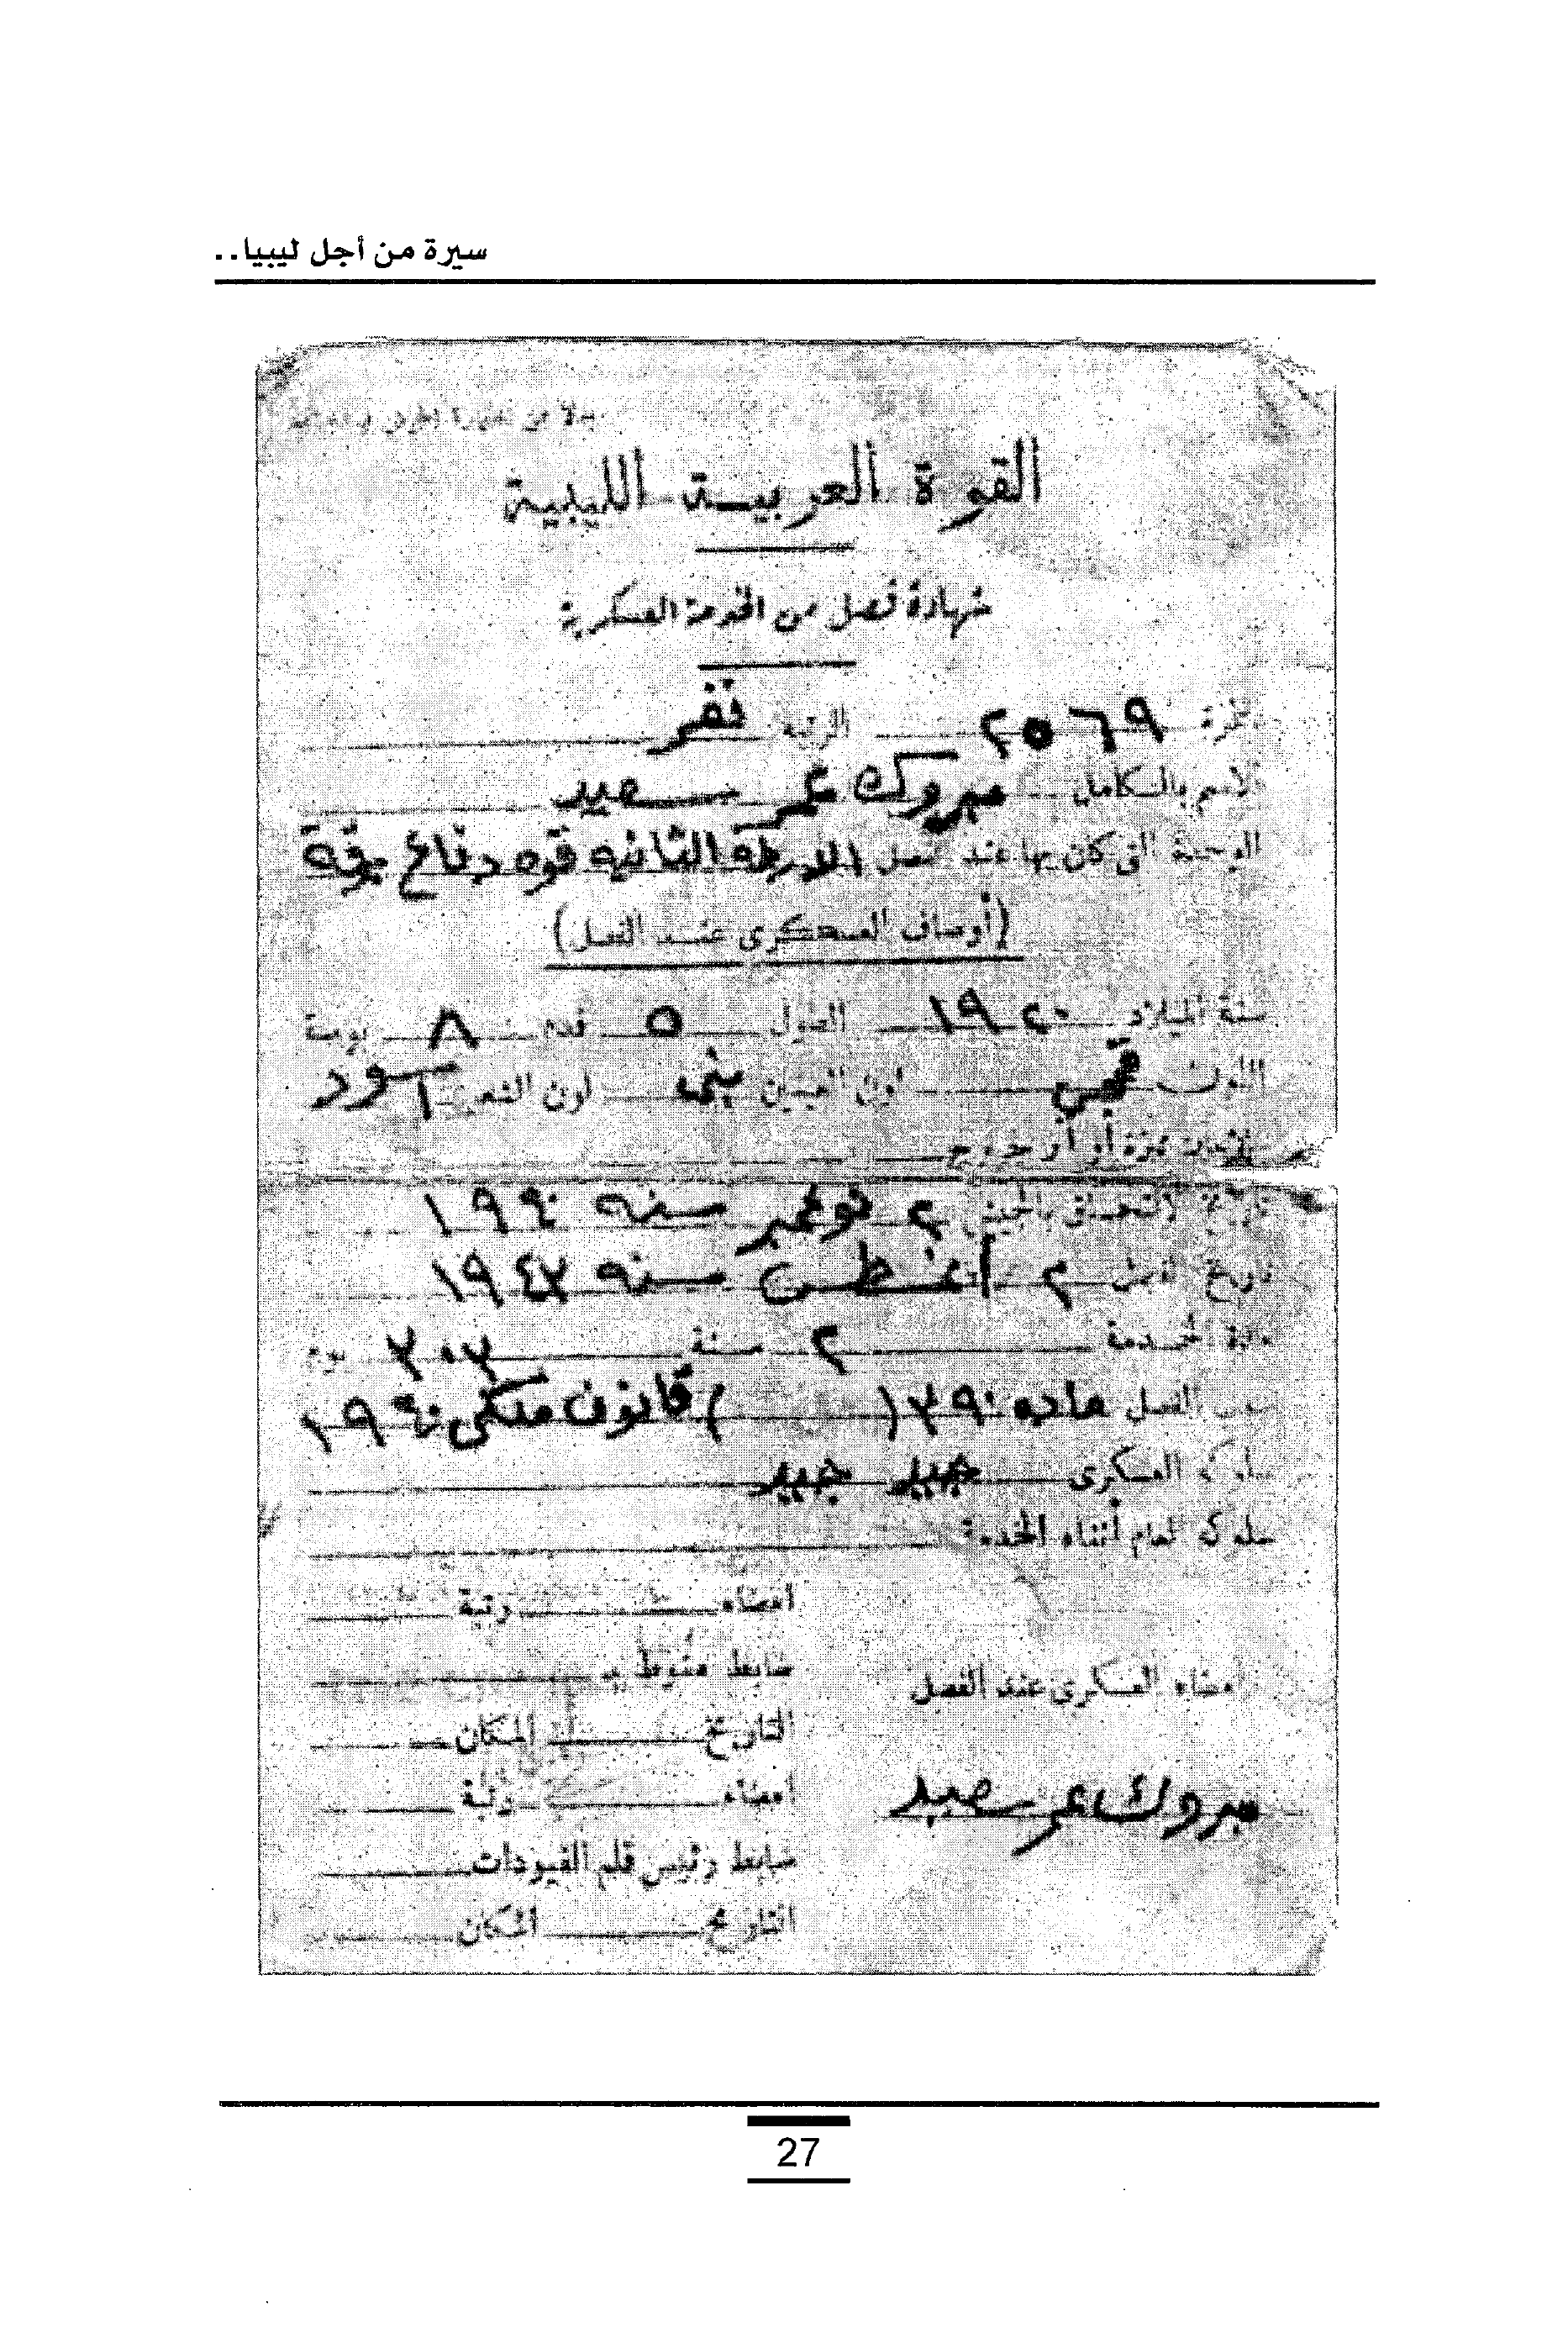 سيرة من أجل ليبيا..
القوة العربية الليبية
شهادة فصل من الخدمة العسكرية
نمرة ٢٥٦٩ الرتبة نفر
الاسم بالكامل مبروك عمر سعيد
الوحدة التى كان بها عند الفصل الاورطه الثانيه قوه دفاع برقة
(أوصاف العسكرى عند الفصل)
سنة الميلاد ١٩٢٠ الطول ٥ قدم ٨ بوصة
اللون قمحي لون العينين بنى لون الشعر اسود
تاريخ التحاق بالجيش ٢ نوفمبر سنه
تاريخ الفصل ٢ أغسطس سنه
مدة الخدمة ٢ سنة يوم
سبب الفصل ماده قانون ملكى
سلوك العسكرى جيد جيد
سلوك العام أثناء الخدمة
امضاء رتبة
ضابط
التاريخ المكان
امضاء رتبة
ضابط رئيس قلم القيودات
التاريخ المكان
امضاء العسكرى عند الفصل
مبروك عمر سعيد
27